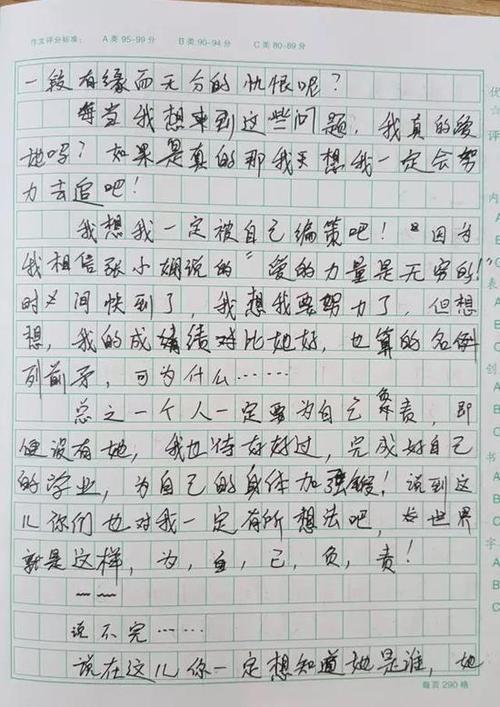 作文评分标准： A类 95-99分 B类 90-94分 C类 80-89分
一段有缘而无分的忧恨呢？
每当我想来到这些问题，我真的爱
她吗？如果是真的那我天想我一定会努
力去追吧！
我想我一定被自己编策吧！“因为
我相信张小娴说的“爱的力量是无穷的！”
时间快到了，我想我要努力了，但想
想，我的成绩对比她好，也算的名例
列前矛，可为什么……
总之一个人一定要为自己负责，即
便没有她，我也待好好过，完成好自己
的学业，为自己的身体加强锻！说到这
儿你们也对我一定有所想法吧，世界
就是这样，为，自，己，负，责！
——
说不完……
说在这儿你一定想知道她是谁，她
每页290格
优
☆
评
内
A
B
C
表
A
B
C
创
A
B
C
书
A
字
B
C